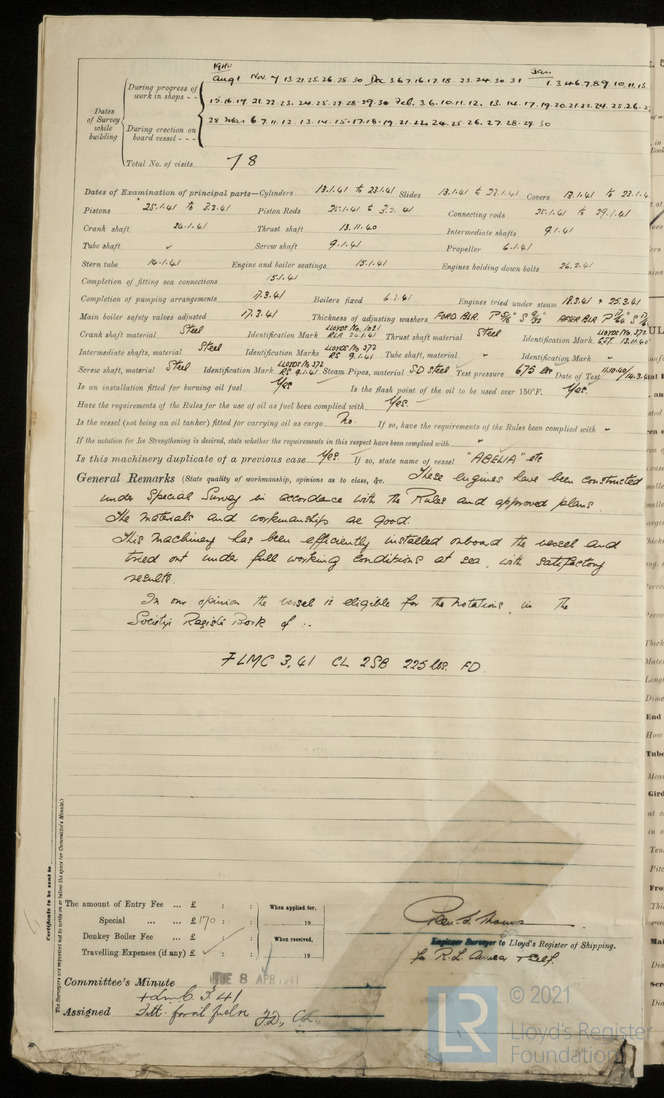 1940
Aug 1 Nov 7 13 21 25 26 28 30 Dec 3 6 7 16 17 18 23 24 30 31 Jan 1 3 4 6 7 8 9 10 11 13
During progress of work in shops - -
15 16 17 21 22 23 24 25 27 28 29 30 Feb 3 6 10 11 12 13 14 17 19 20 21 22 24 25 26 2
Dates of Survey while building
During erection on board vessel - - -
28 Mar 6 7 11 12 13 14 15 17 18 19 21 22 24 25 26 27 28 29 30
Total No. of visits 78
Dates of Examination of principal parts—Cylinders 13.1.41 to 23.1.41 Slides 13.1.41 to 23.1.41 Covers 13.1.41 to 23.1.4
Pistons 25.1.41 to 3.2.41 Piston Rods 25.1.41 to 3.2.41 Connecting rods 25.1.41 to 29.1.41
Crank shaft 24.1.41 Thrust shaft 13.11.40 Intermediate shafts 9.1.41
Tube shaft Screw shaft 9.1.41 Propeller 6.1.41
Stern tube 14.1.41 Engine and boiler seatings 15.1.41 Engines holding down bolts 26.2.41
Completion of fitting sea connections 15.1.41
Completion of pumping arrangements 17.3.41 Boilers fixed 6.2.41 Engines tried under steam 18.3.41 & 25.3.41
Main boiler safety valves adjusted 17.3.41 Thickness of adjusting washers FORD BLR. AFTER BLR
Crank shaft material Steel Identification Mark LLOYDS No. 1021 RLA 24.1.41 Thrust shaft material Steel Identification Mark LLOYDS No 372 13.11.40
Intermediate shafts, material Steel Identification Marks LLOYDS No 372 RS 9.1.41 Tube shaft, material " Identification Mark "
Screw shaft, material Steel Identification Mark LLOYDS No 372 RS 9.1.41 Steam Pipes, material SD Steel Test pressure 675 lbs Date of Test 11.10.40/14.3.41
Is an installation fitted for burning oil fuel Yes Is the flash point of the oil to be used over 150°F. Yes.
Have the requirements of the Rules for the use of oil as fuel been complied with Yes
Is the vessel (not being an oil tanker) fitted for carrying oil as cargo No. If so, have the requirements of the Rules been complied with "
If the notation for Ice Strengthening is desired, state whether the requirements in this respect have been complied with "
Is this machinery duplicate of a previous case Yes. If so, state name of vessel "ABELIA" etc
General Remarks (State quality of workmanship, opinions as to class, &c. These engines have been constructed
under Special Survey in accordance with the Rules and approved plans.
The materials and workmanship are good.
This machinery has been efficiently installed onboard the vessel and
tried out under full working conditions at sea, with satisfactory
results.
In our opinion the vessel is eligible for the notations, in the
Societys Register Book of :-
+ LMC 3,41 CL 2SB 225 lbs. FD.
Certificate to be sent to
The Surveyors are requested not to write on or below the space for Committee's Minute.
The amount of Entry Fee ... £ : : When applied for,
Special ... ... £ 170 : : 19
Donkey Boiler Fee ... £ : : When received,
Travelling Expenses (if any) £ : : 19
Engineer Surveyor to Lloyd's Register of Shipping.
for R. L. & self.
Committee's Minute TUE 8 APR 1941
Assigned + Lmc 3.41
Fitt. for oil fuel FD, CL
LR © 2021
Lloyd's Register
Foundation